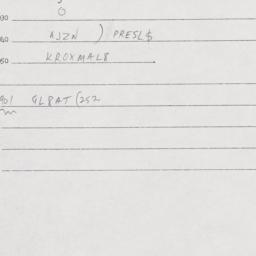 O
30
40 AJZN ) PRESL$
50 KROXMAL8
901 GLBAT (252